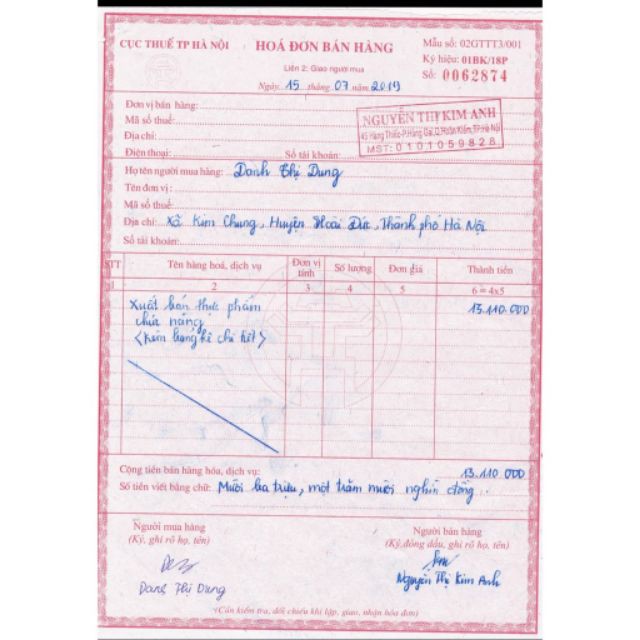 CỤC THUẾ TP HÀ NỘI
HOÁ ĐƠN BÁN HÀNG
Liên 2: Giao người mua
Ngày 15 tháng 07 năm 2019
Mẫu số: 02GTTT3/001
Ký hiệu: 01BK/18P
Số: 0062874
Đơn vị bán hàng:
Mã số thuế:
Địa chỉ:
Điện thoại: Số tài khoản:
NGUYỄN THỊ KIM ANH
45 Hàng Thiếc-P.Hàng Gai,Q.Hoàn Kiếm,TP.Hà Nội
MST: 0101059828
Họ tên người mua hàng: Danh Thị Dung
Tên đơn vị:
Mã số thuế:
Địa chỉ: Xã Kim Chung, Huyện Hoài Đức, Thành phố Hà Nội
Số tài khoản:
STT Tên hàng hoá, dịch vụ Đơn vị tính Số lượng Đơn giá Thành tiền
1 2 3 4 5 6 = 4x5
Xuất bán thực phẩm 13.110.000
chức năng
<Kèm bảng kê chi tiết>
Cộng tiền bán hàng hóa, dịch vụ: 13.110.000
Số tiền viết bằng chữ: Mười ba triệu, một trăm mười nghìn đồng.
Người mua hàng
(Ký, ghi rõ họ, tên)
Danh Thị Dung
Người bán hàng
(Ký,đóng dấu, ghi rõ họ, tên)
Nguyễn Thị Kim Anh
(Cần kiểm tra, đối chiếu khi lập, giao, nhận hóa đơn)